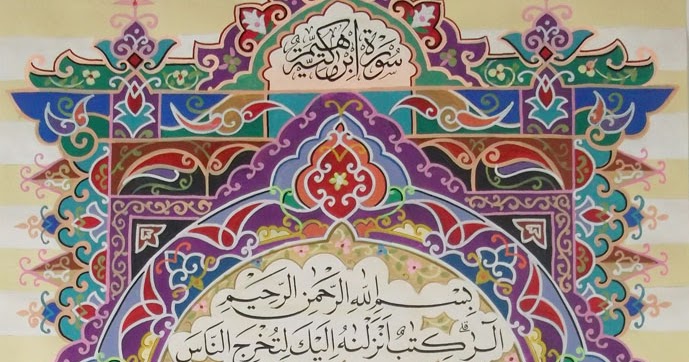 سورة ابراهيم مكية
بسم الله الرحمن الرحيم
الٓرٰ ۗ كتٰب انزلنٰه اليك لتخرج الناس